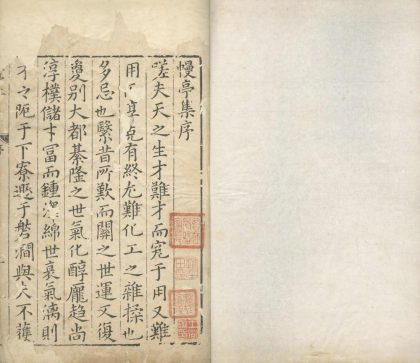 幔亭集序
嗟夫天之生才難才而究于用又難
用而享克有終尤難化工之雜揉也
多忌也繄昔所歎而關之世運又復
夐別大都綦隆之世氣化醇龐趨尚
淳樸儲才冨而鍾游綿世衰氣漓則
才之阨于下寮遯于槃澗與夫不獲